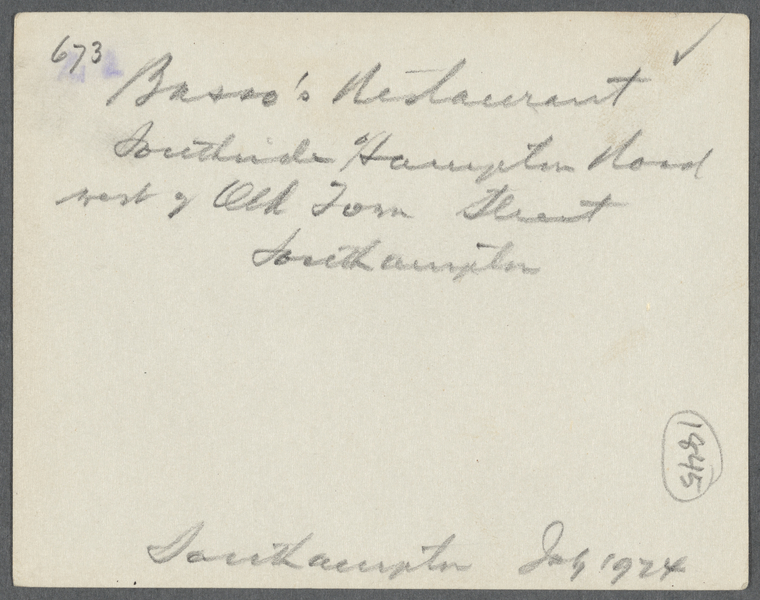 673
Basso's Restaurant
Southside of Hampton Road
west of Old Town Street
Southampton
1845
Southampton July 1924